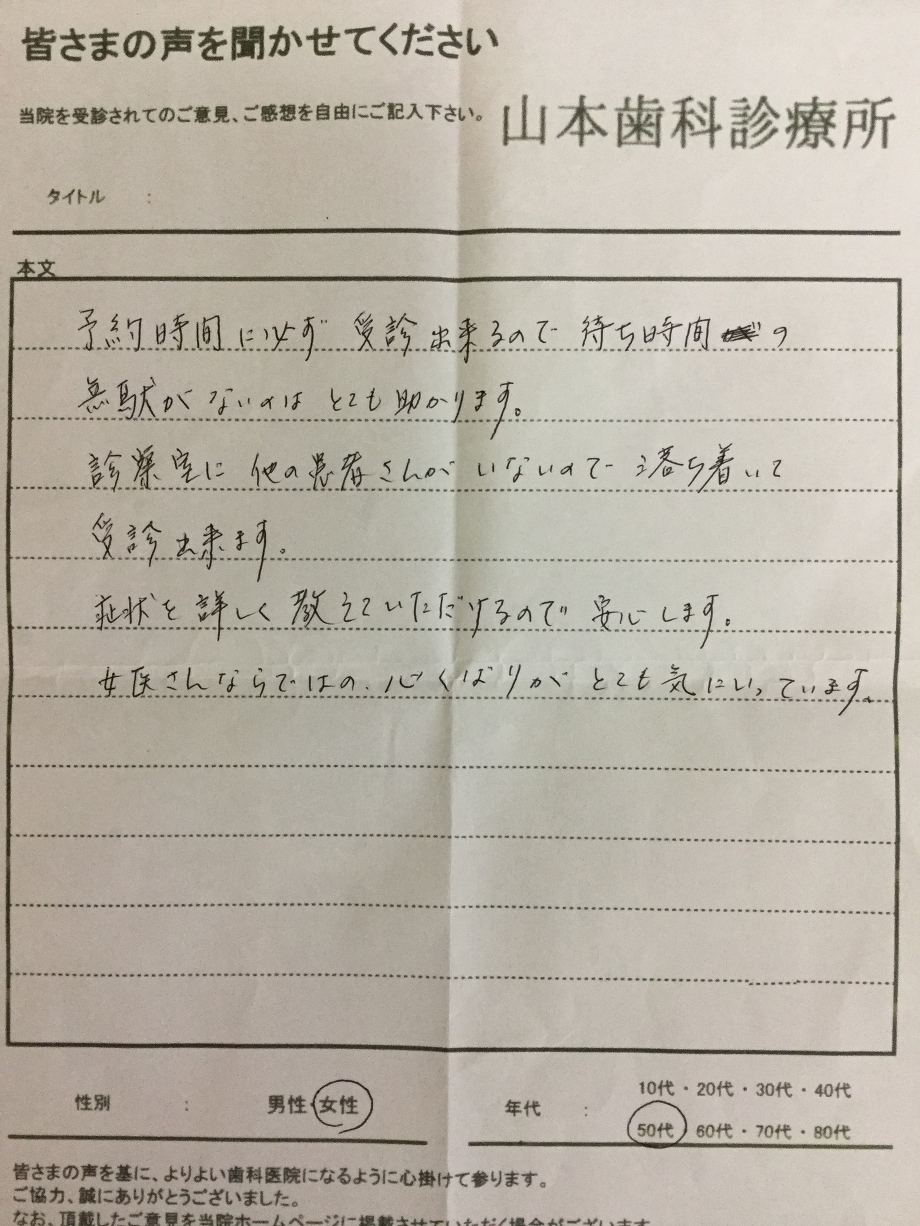 皆さまの声を聞かせてください
当院を受診されてのご意見、ご感想を自由にご記入下さい。
山本歯科診療所
タイトル :
本文
予約時間に必ず 受診出来るので 待ち時間の
無駄がないのは とても助かります。
診察室に 他の患者さんが いないので 落ち着いて
受診出来ます。
症状を詳しく教えていただけるので 安心します。
女医さんならではの、心くばりが とても気にいっています。
性別 : 男性・女性
年代 : 10代・20代・30代・40代
50代・60代・70代・80代
皆さまの声を基に、よりよい歯科医院になるように心掛けて参ります。
ご協力、誠にありがとうございました。
なお、頂戴したご意見を当院ホームページに掲載させていただく場合がございます